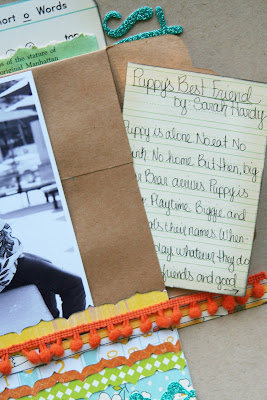 hort o Words
top
s of the stature of
original Manhattan
Puppy's Best Friend
by: Sarah Hardy
Puppy is alone. No eat. No
No home. But then, big
Bear arrives. Puppy is
Playtime. Biggie and
their names. When
play whatever they do
friends and good